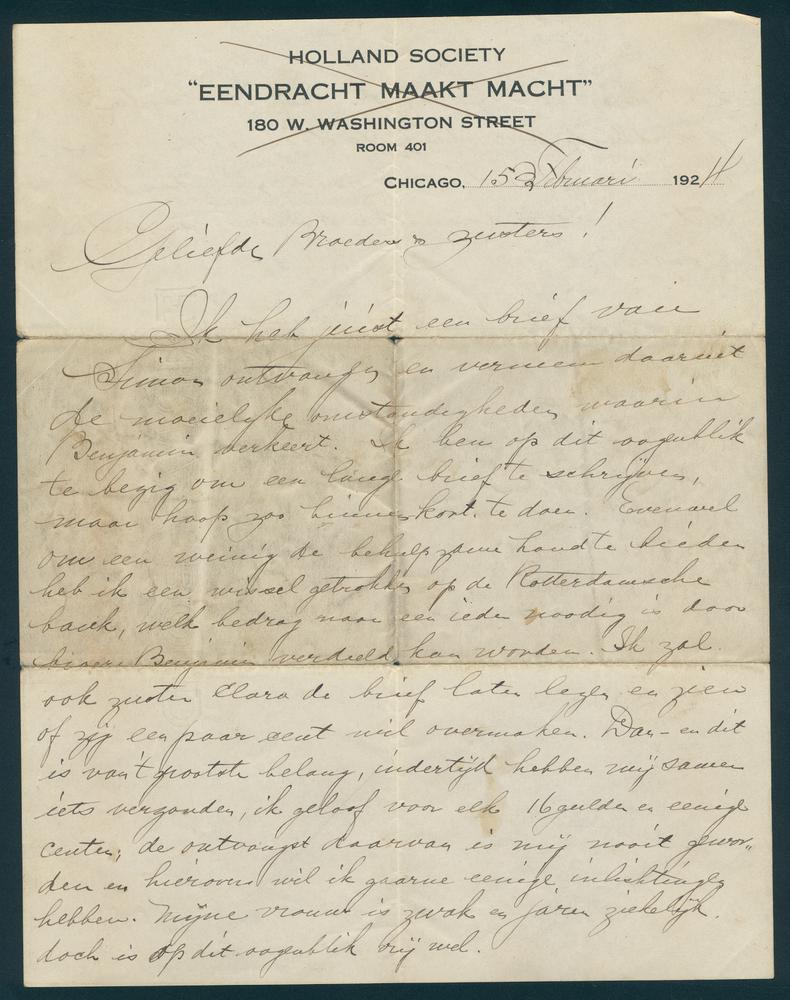 HOLLAND SOCIETY
"EENDRACHT MAAKT MACHT"
180 W. WASHINGTON STREET
ROOM 401
CHICAGO, 15 Februari 1924
Geliefde Broeders & zusters!
Ik heb juist een brief van
Simon ontvangen en verneem daaruit
de moeielijke omstandigheden waarin
Benjamin verkeert. Ik ben op dit oogenblik
te bezig om een lange brief te schrijven,
maar hoop zoo binnenkort te doen. Evenwel
om een weinig de behulpzame hand te bieden
heb ik een wissel getrokken op de Rotterdamsche
bank, welk bedrag naar een ieder noodig is door
Benjamin verdeeld kan worden. Ik zal
ook zuster Clara de brief laten lezen en zien
of zij een paar cent wil overmaken. Dan - en dit
is van 't grootste belang, indertijd hebben wij samen
iets verzonden, ik geloof voor elk 16 gulden en eenige
centen; de ontvangst daarvan is mij nooit gewor„
den en hierover wil ik gaarne eenige inlichtingen
hebben. Mijne vrouw is zwak en jaren ziekelijk,
doch is op dit oogenblik vrij wel.